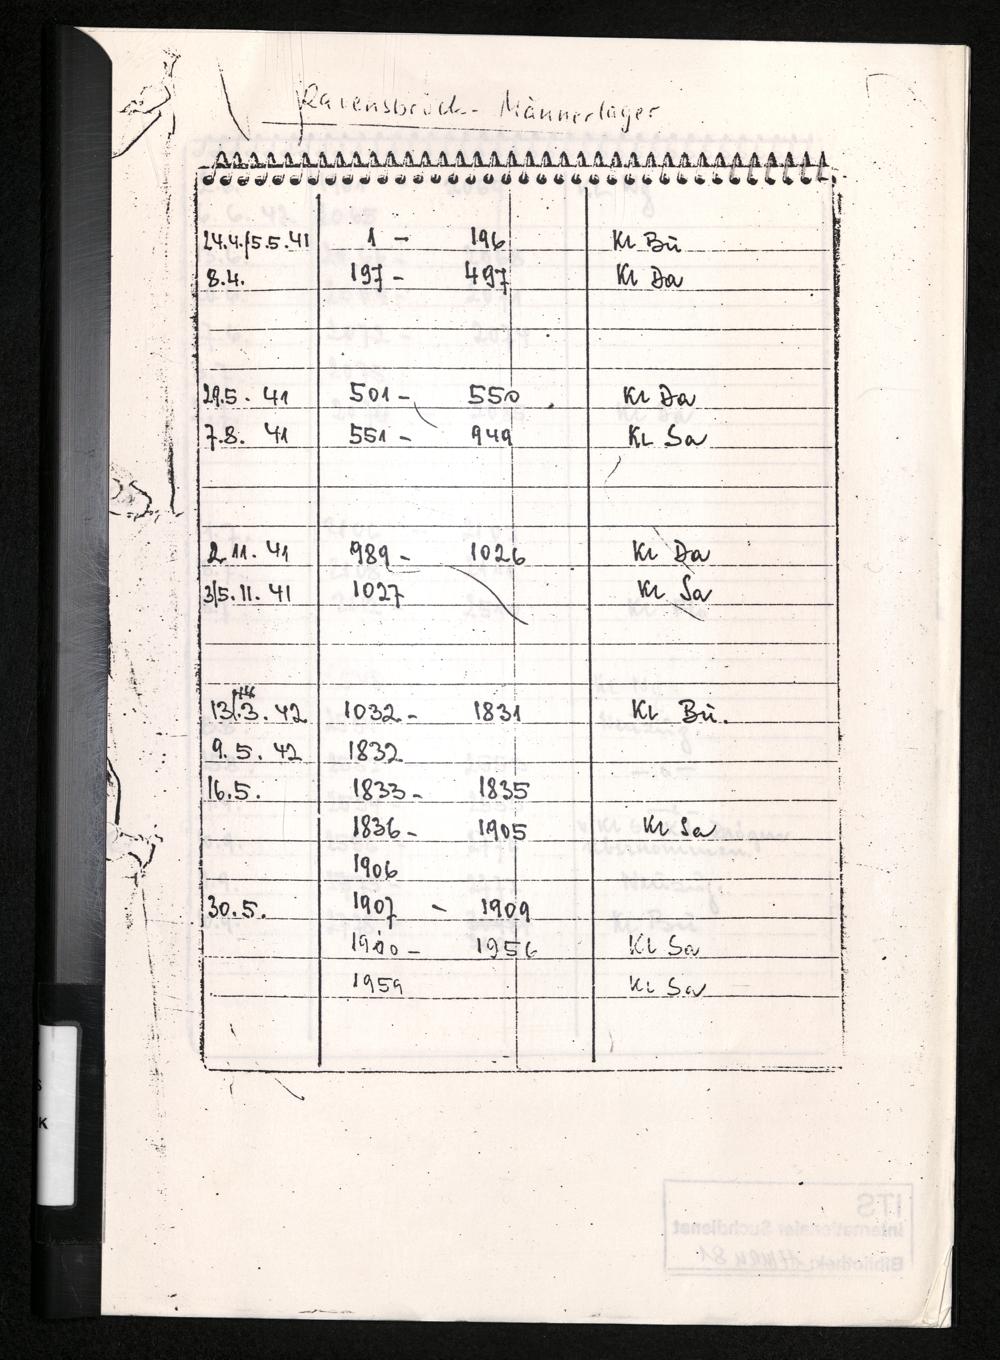 Ravensbrück - Männerlager
24.4./5.5.41 1 - 196 KL Bu
8.4. 197 - 497 KL Da
29.5. 41 501 - 550 KL Da
7.8. 41 551 - 949 KL Sa
2.11. 41 989 - 1026 KL Da
3/5.11. 41 1027 KL Sa
13./14.3. 42 1032 - 1831 KL Bu.
9.5. 42 1832
16.5. 1833 - 1835
1836 - 1905 KL Sa
1906
30.5. 1907 - 1909
1910 - 1956 KL Sa
1959 KL Sa
K
ITS
Internationaler Suchdienst
Bibliothek: